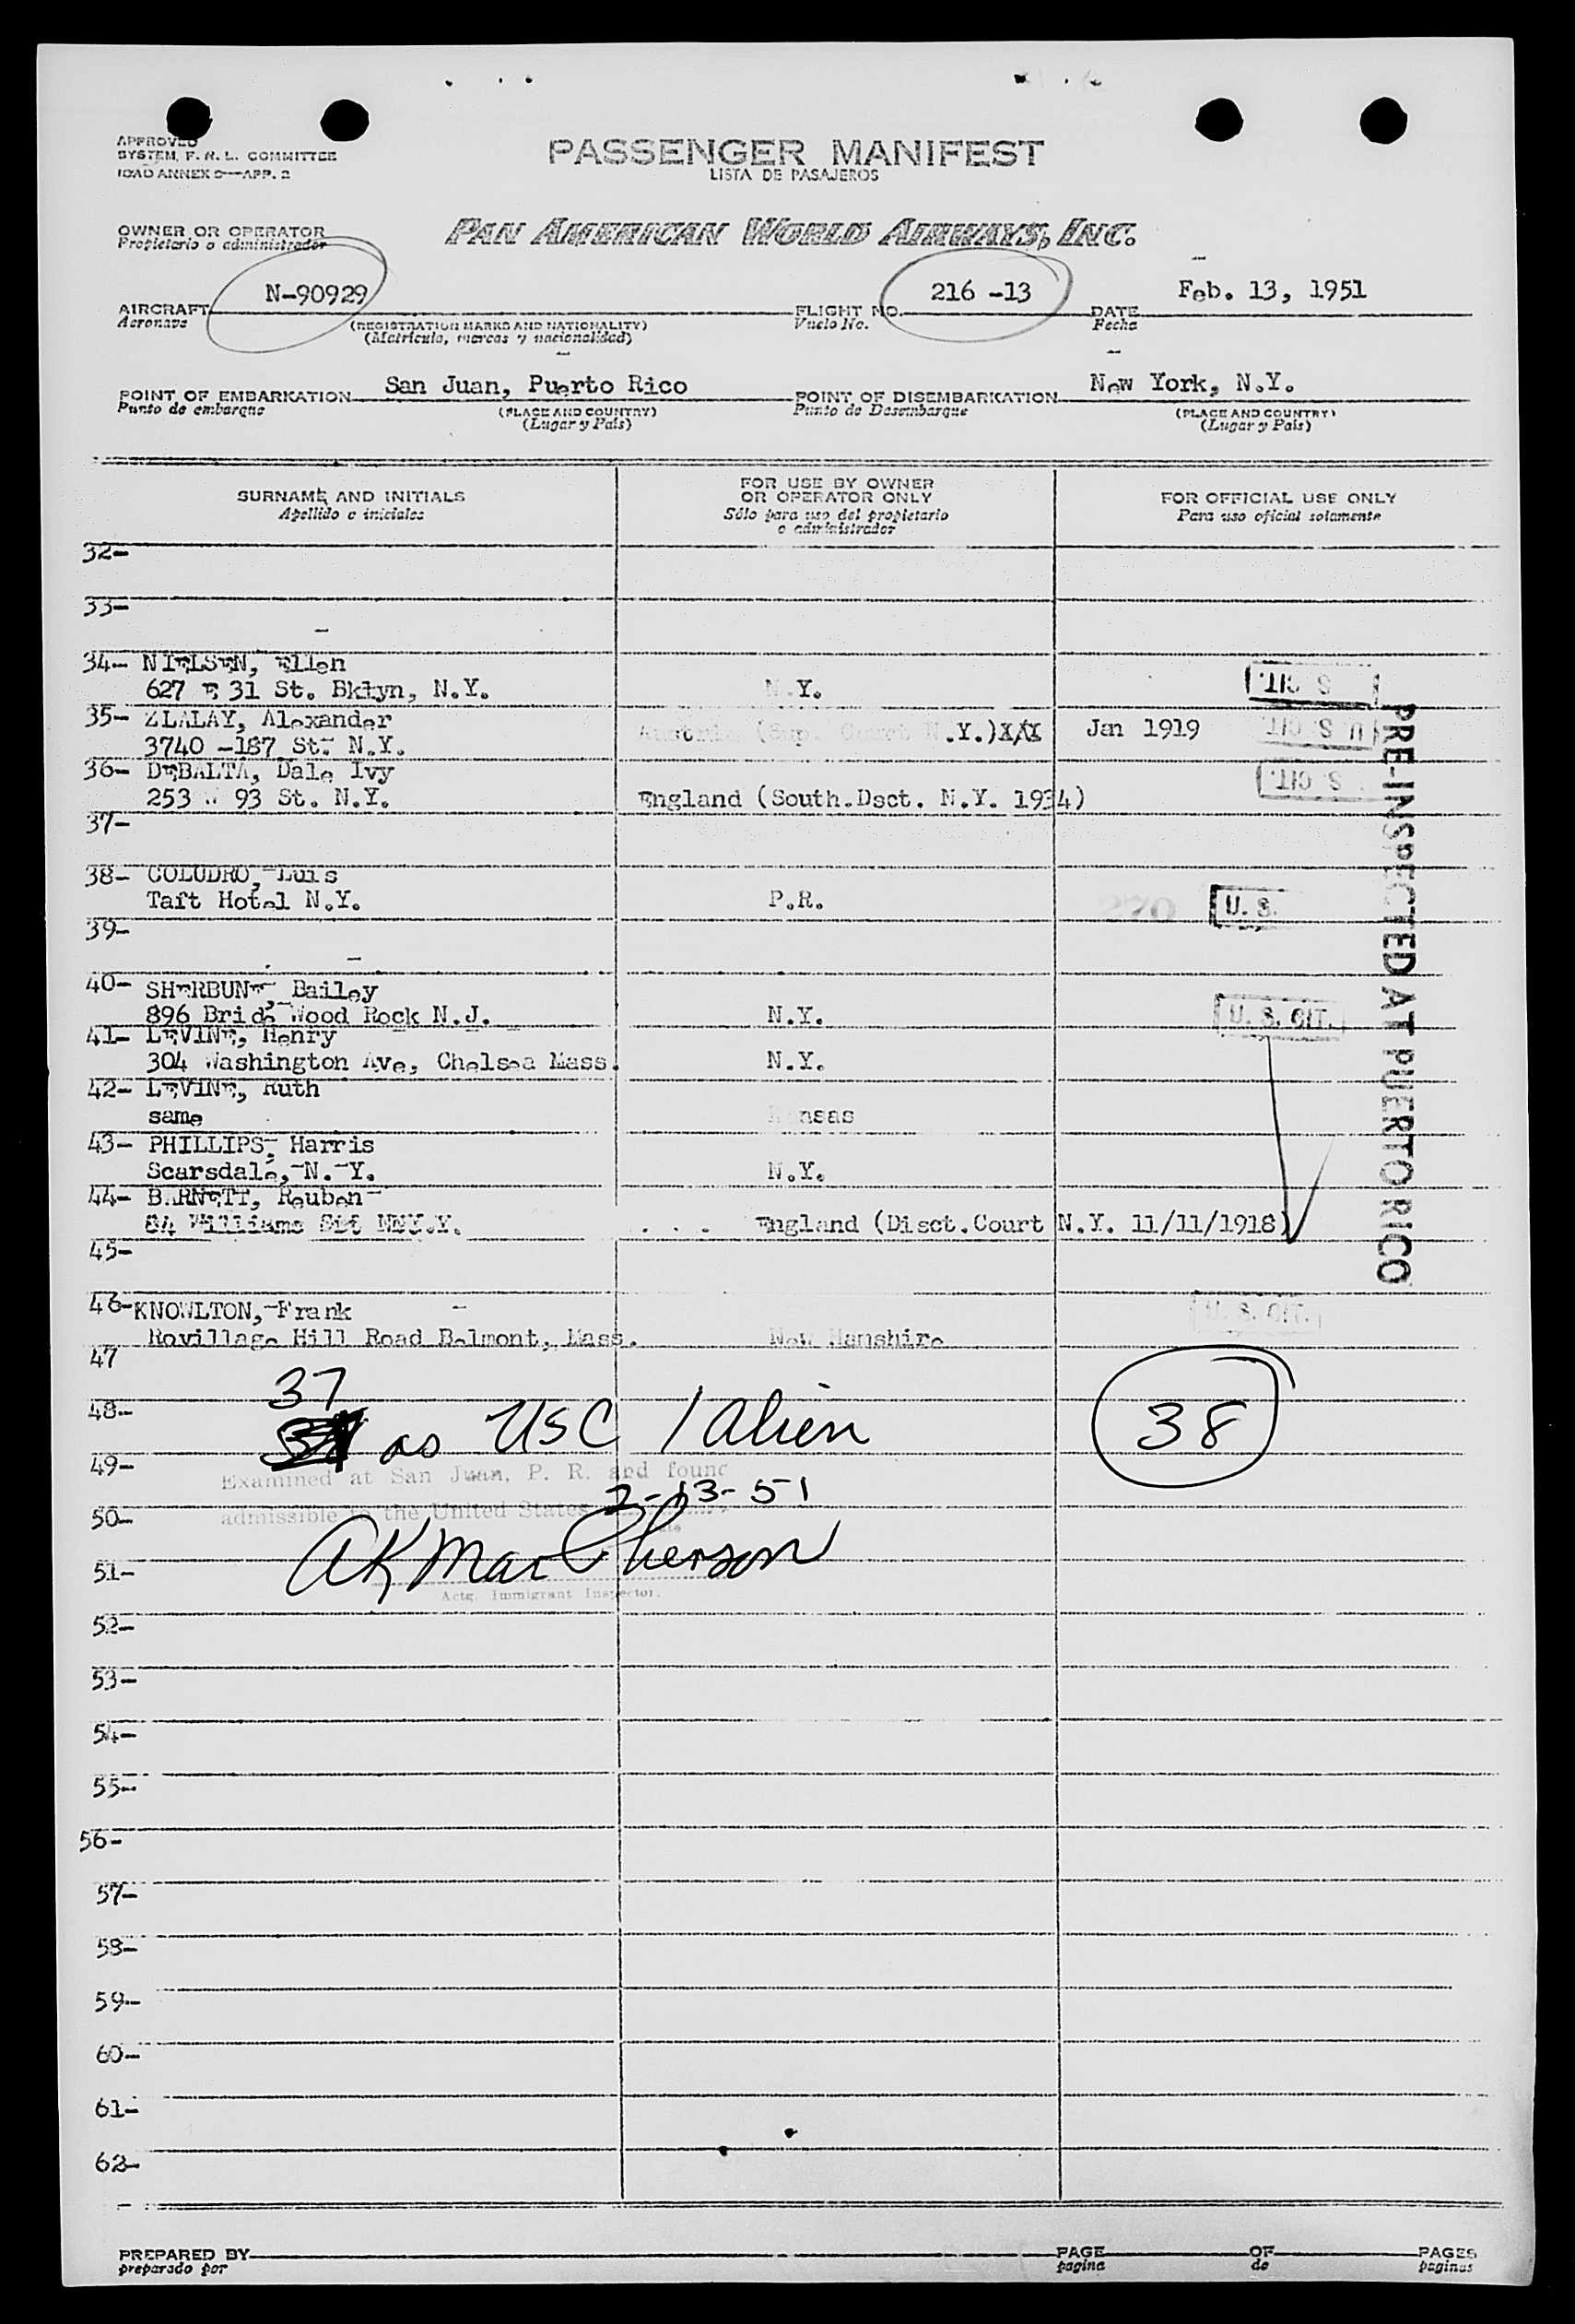 APPROVED
SYSTEM, F. A. L. COMMITTEE
ICAO ANNEX 9—APP. 2
PASSENGER MANIFEST
LISTA DE PASAJEROS
OWNER OR OPERATOR
Propietario o administrador
PAN AMERICAN WORLD AIRWAYS, INC.
AIRCRAFT N-90929
Aeronave
(REGISTRATION MARKS AND NATIONALITY)
(Matrícula, marcas y nacionalidad)
FLIGHT NO. 216 -13
Vuelo No.
DATE Feb. 13, 1951
Fecha
POINT OF EMBARKATION San Juan, Puerto Rico
Punto de embarque
(PLACE AND COUNTRY)
(Lugar y País)
POINT OF DISEMBARKATION New York, N.Y.
Punto de Desembarque
(PLACE AND COUNTRY)
(Lugar y País)
SURNAME AND INITIALS
Apellido e iniciales
FOR USE BY OWNER
OR OPERATOR ONLY
Sólo para uso del propietario
o administrador
FOR OFFICIAL USE ONLY
Para uso oficial solamente
32-
33-
34- NIELSEN, Ellen
627 E 31 St. Bklyn, N.Y. N.Y. S CIT.
35- ZLALAY, Alexander
3740 -187 St. N.Y. (Sup. Court N.Y.)X/X Jan 1919 U S CIT
36- DEBALTA, Dale Ivy S CIT.
253 W 93 St. N.Y. England (South.Dsct. N.Y. 1934)
37-
38- COLUDRO, Luis
Taft Hotel N.Y. P.R. 270 U. S.
39-
40- SHERBUNE, Bailey
896 Wood Rock N.J. N.Y. U. S. CIT.
41- LEVINE, Henry
304 Washington Ave, Chelsea Mass. N.Y.
42- LEVINE, Ruth
same Kansas
43- PHILLIPS, Harris
Scarsdale, N. Y. N.Y.
44- BARNETT, Reuben
84 Williams N.Y. England (Disct.Court N.Y. 11/11/1918)
45-
46- KNOWLTON, Frank U. S. CIT.
Rovillage Hill Road Belmont, Mass. New Hamshire
PRE-INSPECTED AT PUERTO RICO
47
37
48-
as USC 1 alien 38
49-
Examined at San Juan, P. R. and found
2-13-51
50-
admissible to the United States
Date
AK MacPherson
51-
Actg. Immigrant Inspector.
52-
53-
54-
55-
56-
57-
58-
59-
60-
61-
62-
PREPARED BY
preparado por
PAGE OF PAGES
pagina de paginas